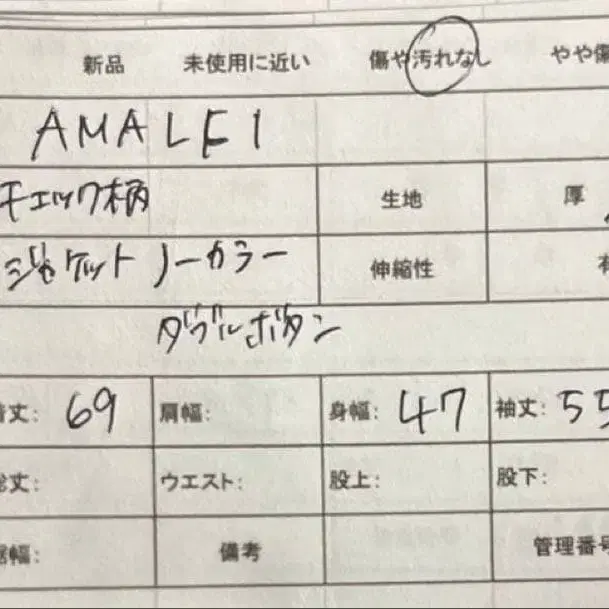 新品 未使用に近い 傷や汚れなし やや傷
AMALFI
チェック柄 生地 厚
ジャケット ノーカラー 伸縮性
ダブルボタン
着丈: 69 肩幅: 身幅: 47 袖丈: 55
総丈: ウエスト: 股上: 股下:
裾幅: 備考 管理番号